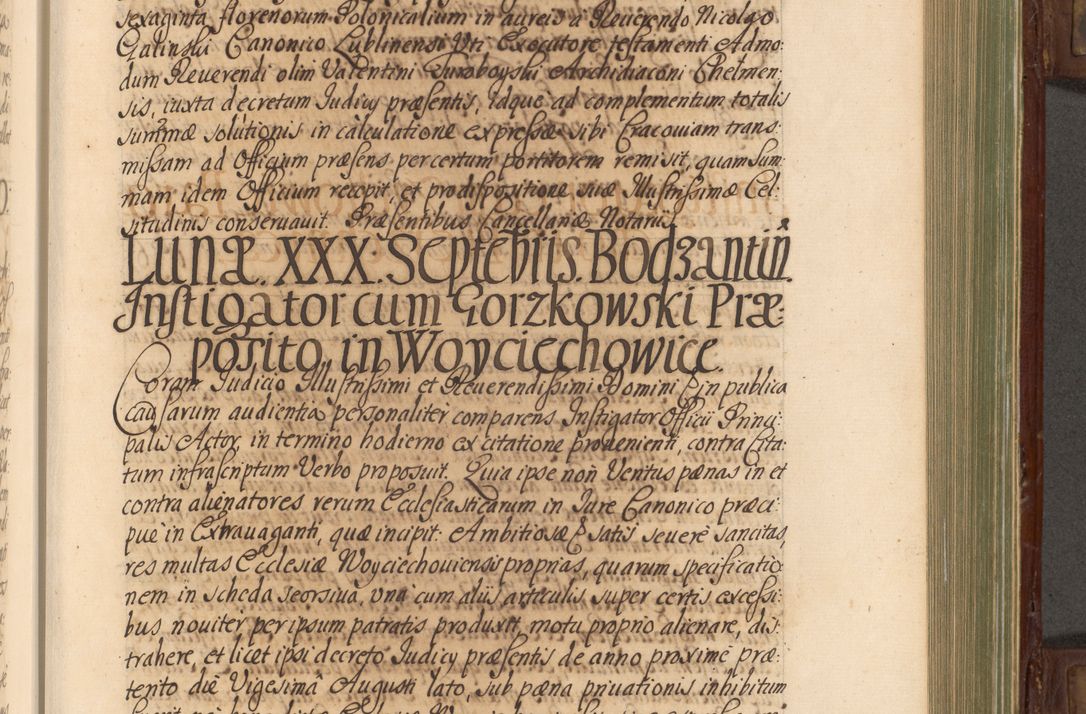 sexaginta florenorum Polonicalium in aureis a Reuerendo Nicolao
Gatinski Canonico Lublinensi Vti Executore testamenti Admo:
dum Reuerendi olim Valentini Turoboyski Archidiaconi Chelmen:
sis, iuxta decretum Judicij præsentis, idque ad complementum totalis
summæ solutionis in calculatione expressæ sibi Cracouiam trans:
missam ad Officium præsens per certum portitorem remisit, quam Sum:
mam idem Officium recepit, et pro dispositione suæ Illustrissimæ Cel:
situdinis conseruauit. Præsentibus Cancellariæ Notarijs
Lunæ. XXX. Septēbris. Bodzantiñ.
Instigator cum Gorzkowski Præ:
posito in Woyciechowice.
Coram Judicio Illustrissimi et Reuerendissimi Domini E in publica
causarum audientia personaliter comparens Instigator Officii Princi:
palis Actor, in termino hodierno ex citatione proueniente, contra Cita:
tum infrascriptum Verbo proposuit. Quia ipse non Ventus pænas in et
contra alienatores rerum Ecclesiasticarum in Jure Canonico præci:
pue in Extrauaganti, quæ incipit: Ambitiosæ E satis seuere sancitas,
res multas Ecclesiæ Woyciechouiensis proprias, quarum specificatio:
nem in scheda seorsiua, vna cum aliis articulis super certis excessi:
bus nouiter per ipsum patratis produxit, motu proprio alienare, dis:
trahere, et licet ipsi decreto Judicij præsentis de anno proxime præ:
tento die Vigesima Augusti lato, sub pæna priuationis inhibitum